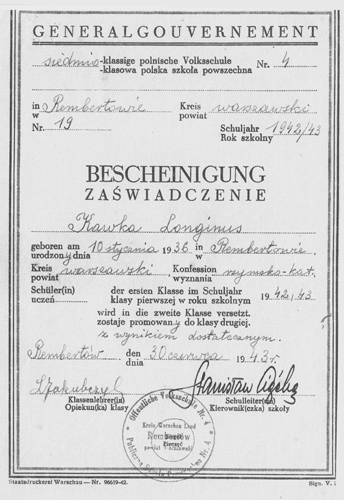 GENERALGOUVERNEMENT
siedmio -klassige polnische Volksschule Nr. 4
-klasowa polska szkoła powszechna
in Rembertowie Kreis warszawski
w powiat
Nr. 19 Schuljahr 1942/43
Rok szkolny
BESCHEINIGUNG
ZAŚWIADCZENIE
Kawka Longinus
geboren am 10 stycznia 1936 in Rembertowie
urodzony dnia w
Kreis warszawski, Konfession rzymsko-kat.
powiat wyznania
Schüler(in) der ersten Klasse im Schuljahr 1942/43
uczeń klasy pierwszej w roku szkolnym
wird in die zweite Klasse versetzt.
zostaje promowany do klasy drugiej.
z wynikiem dostatecznym.
Rembertów, den 30 czerwca 1943 r.
dnia
Stanisław
Klassenlehrer(in) Schulleiter(in)
Opiekun(ka) klasy Kierownik(czka) szkoły
Öffentliche Volksschule Nr. 4
Kreis Warschau Land
Rembertów
powiat Warszawski
Publiczna Szkoła Powszechna Nr. 4
Staatsdruckerei Warschau — Nr. 96619-42. Sign. V.